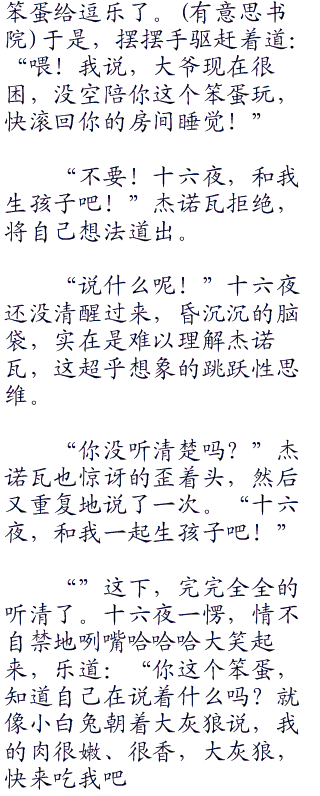 笨蛋给逗乐了。(有意思书
院)于是，摆摆手驱赶着道：
“喂！我说，大爷现在很
困，没空陪你这个笨蛋玩，
快滚回你的房间睡觉！”
“不要！十六夜，和我
生孩子吧！”杰诺瓦拒绝，
将自己想法道出。
“说什么呢！”十六夜
还没清醒过来，昏沉沉的脑
袋，实在是难以理解杰诺
瓦，这超乎想象的跳跃性思
维。
“你没听清楚吗？”杰
诺瓦也惊讶的歪着头，然后
又重复地说了一次。“十六
夜，和我一起生孩子吧！”
“”这下，完完全全的
听清了。十六夜一愣，情不
自禁地咧嘴哈哈哈大笑起
来，乐道：“你这个笨蛋，
知道自己在说着什么吗？就
像小白兔朝着大灰狼说，我
的肉很嫩、很香，大灰狼，
快来吃我吧